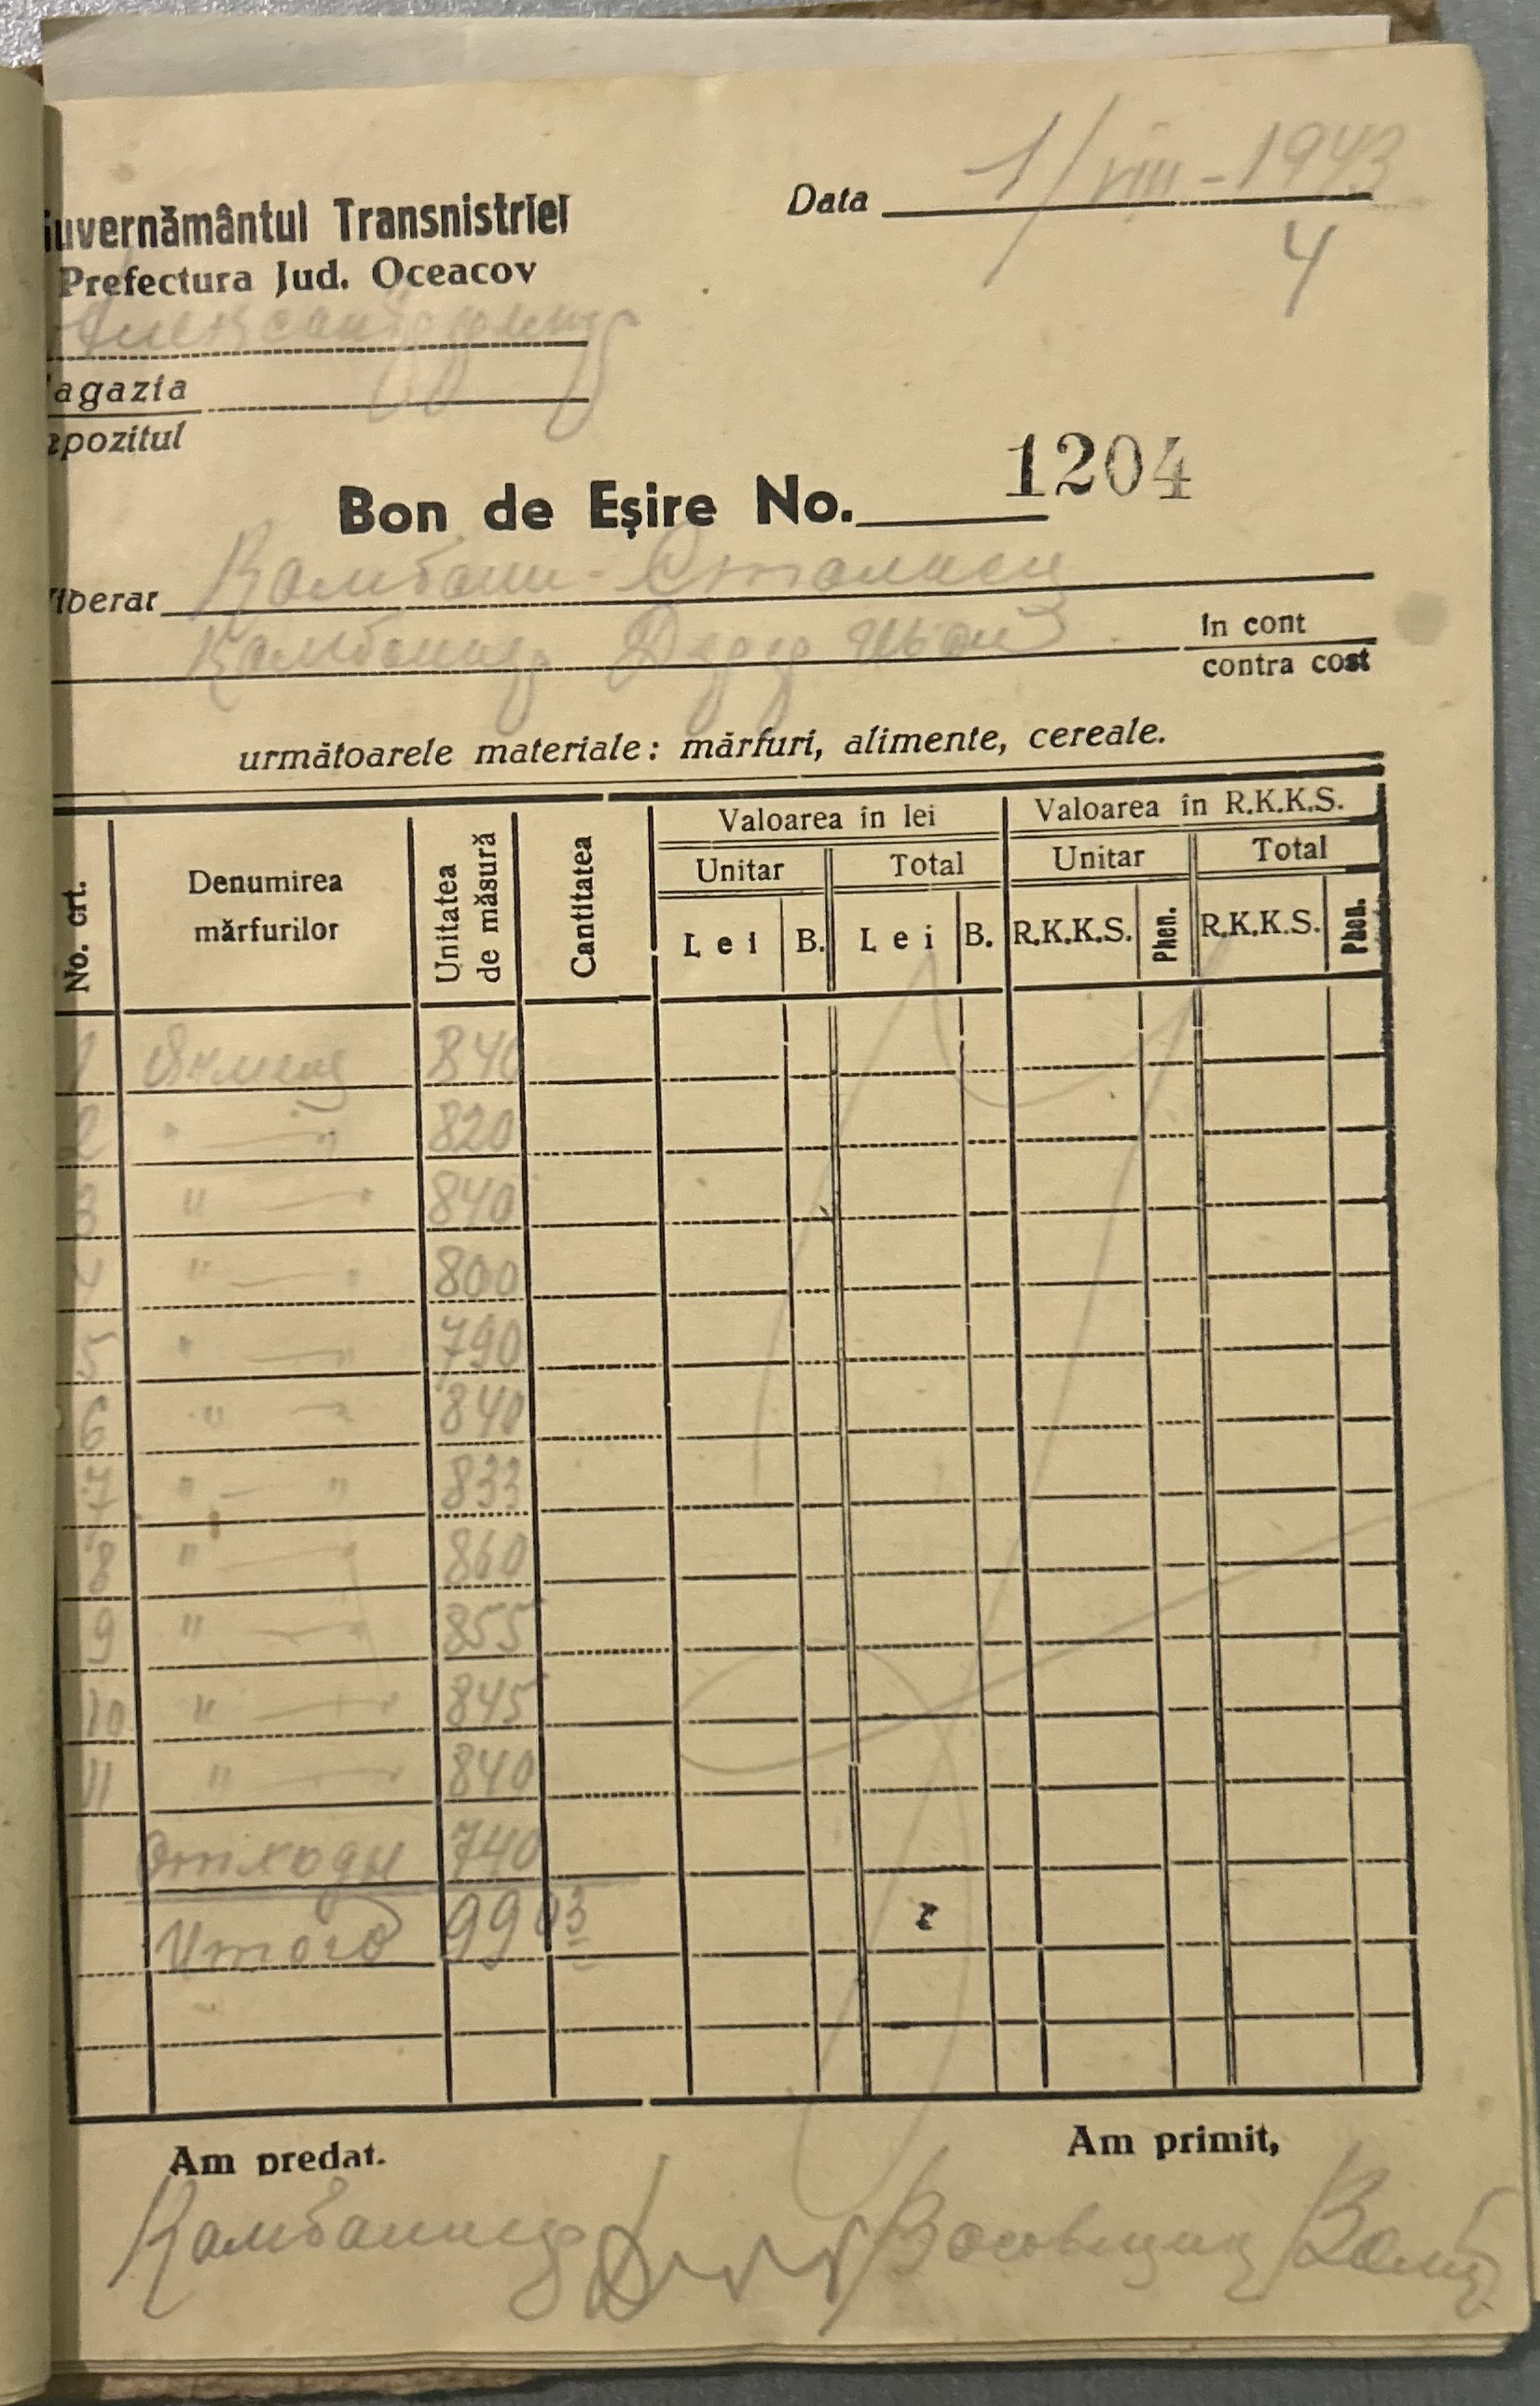 Data 1/VIII-1943
4
uvernământul Transnistriei
Prefectura Jud. Oceacov
agazia
epozitul
Bon de Eșire No. 1204
iberat Комбайн-Сталинец
Комбайнер Деде Иван
în cont
contra cost
următoarele materiale: mărfuri, alimente, cereale.
No. crt. Denumirea mărfurilor Unitatea de măsură Cantitatea Valoarea în lei Valoarea în R.K.K.S.
Unitar Total Unitar Total
Lei B. Lei B. R.K.K.S. Phen. R.K.K.S. Phen.
1 Ячмень 840
2 " — " 820
3 " — " 840
4 " — " 800
5 " — " 790
6 " — " 840
7 " — " 833
8 " — " 860
9 " — " 855
10 " — " 845
11 " — " 840
Отходы 740
Итого 9903
Am predat. Am primit,
Комбайнер Весовщик